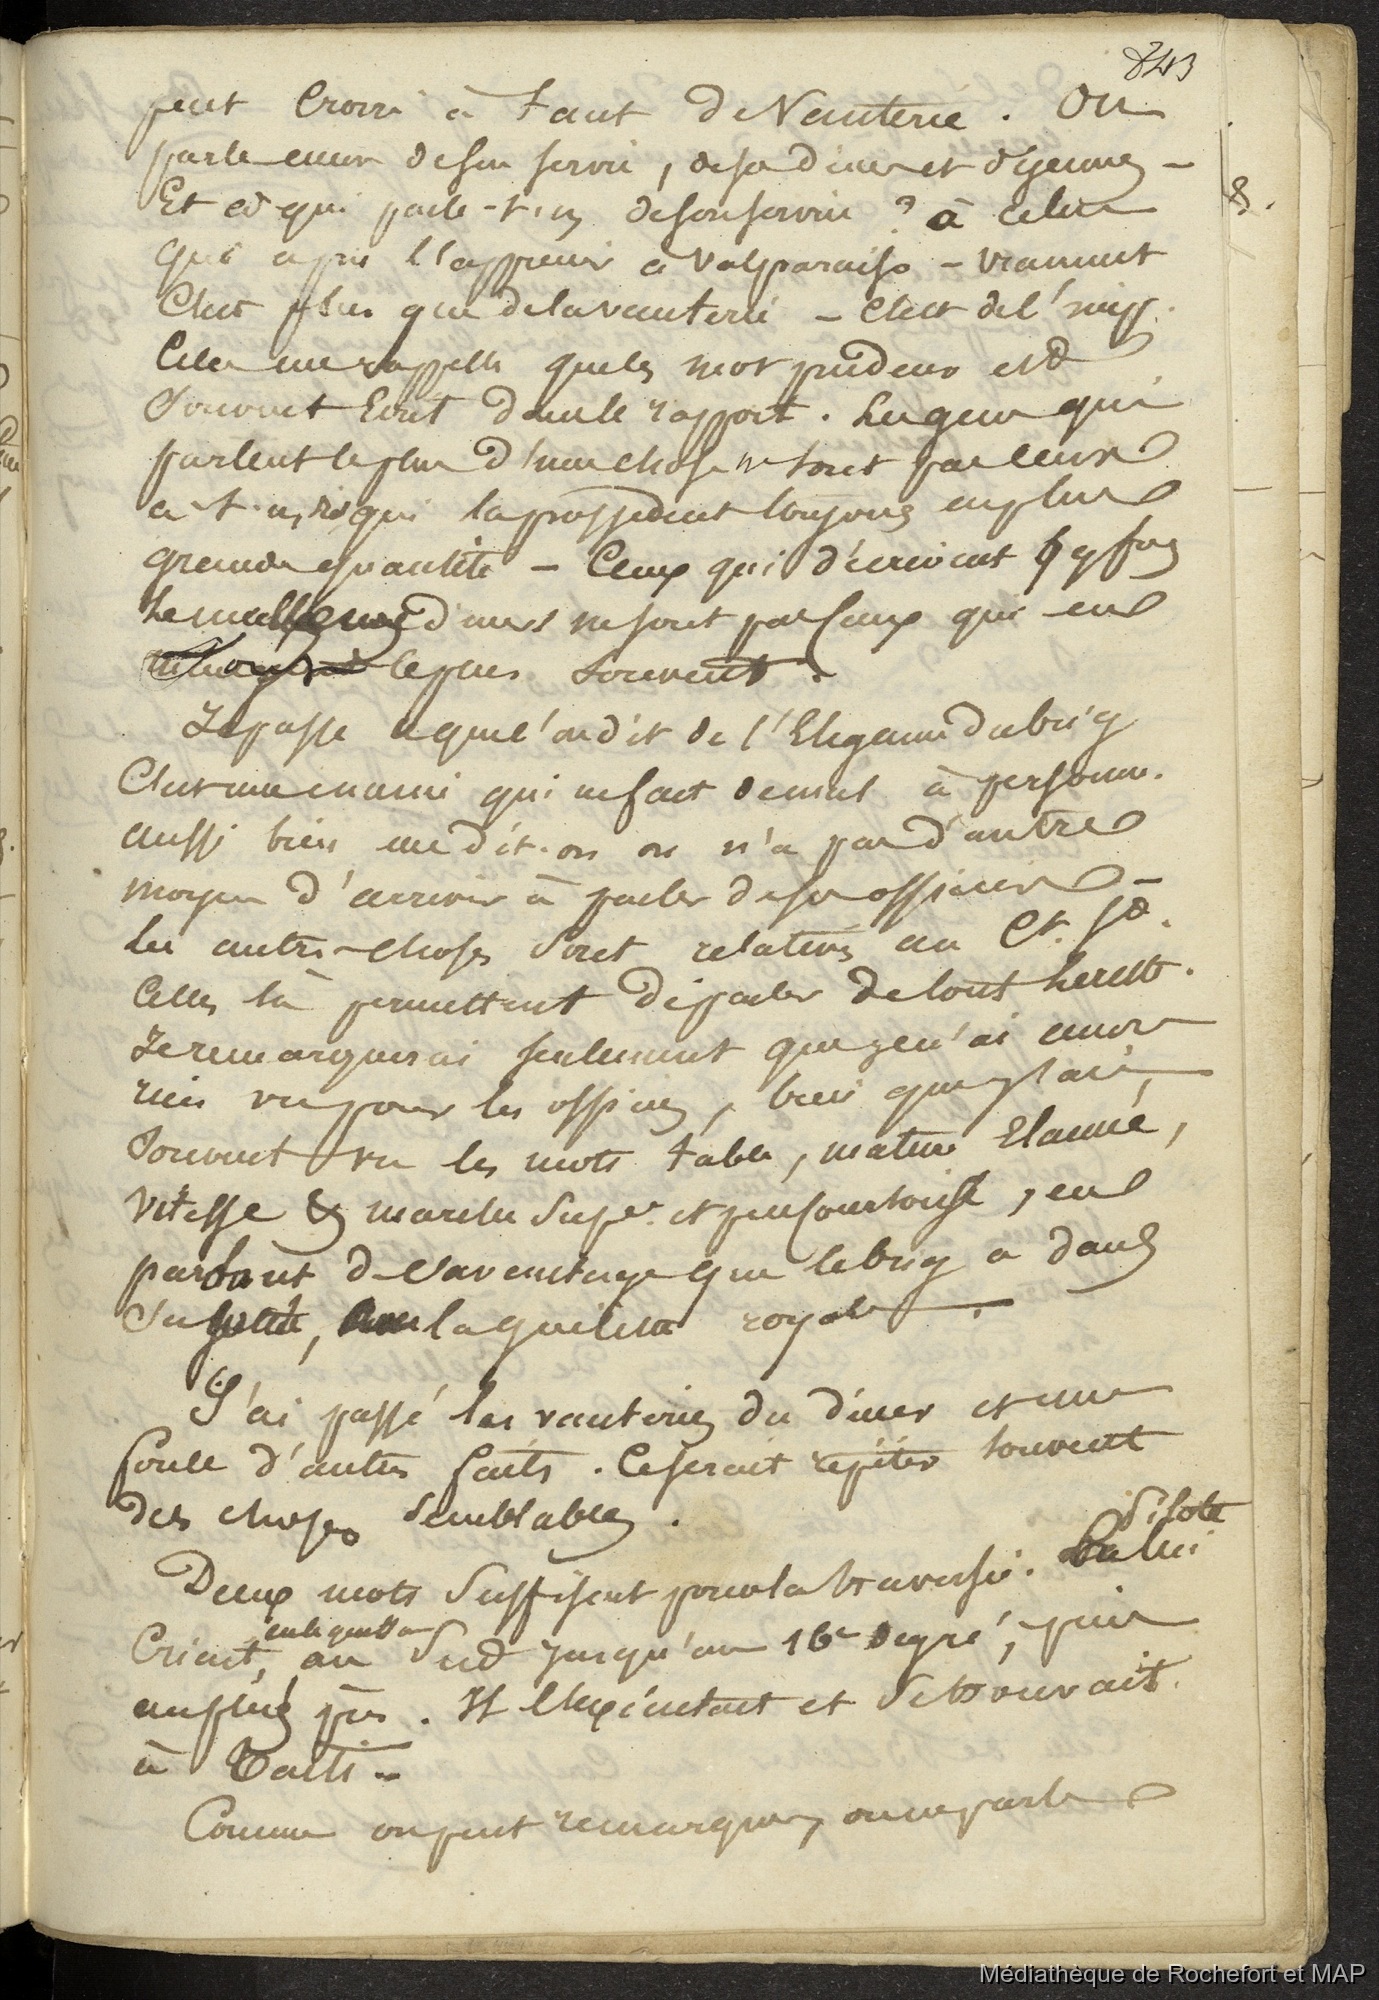 843
peut croire à tant de Vanterie. On
parle encore de son service, de ses diners et déjeuners –
Et à qui parle-t-on de son service ? à celui
qui a pu l'apprécier à Valparaiso – vraiment
C'est plus que de la vanterie – C'est de l'
Cela me rappelle que le mot prudence est
Souvent Ecrit dans le rapport. Les gens qui
parlent le plus d'une chose ne sont pas ceux
qui la possèdent toujours en plus
grande quantité – Ceux qui décrivent
le mieux les diners ne sont pas ceux qui en
le plus souvent.
Je passe ce que l'on dit de l'Elégance du brig
C'est une manie qui ne fait de mal à personne.
aussi bien me dit-on on n'a pas d'autre
moyen d'arriver à parler de ses officiers –
les autres choses sont relatives au Ct. Sd.
Celles là permettent de parler de tout le reste.
Je remarquerai seulement que je n'ai encore
rien vu pour les officiers, bien que j'aie
Souvent vu les mots table, mature Elancée,
vitesse & marche Supre. et peu courtoise, en
parlant de l'avantage que le brig a dans
Sa lutte, avec la goelette royale.
J'ai passé les vanteries du diner et une
foule d'autres faits. Ce serait répéter souvent
des choses semblables.
Deux mots suffisent pour la traversée. Pilote
Crient, au Sud jusqu'au 16e degré, puis
en plus pres. Il s'exécutait et se trouvait
à Taiti –
Comme on peut remarquer, on ne parle
8.
Médiathèque de Rochefort et MAP